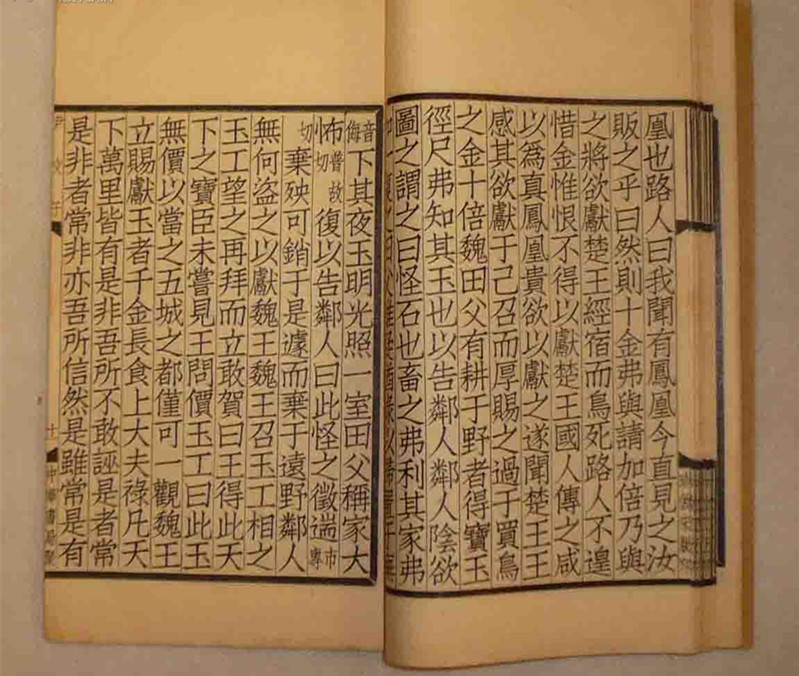 凰也路人曰我聞有鳳凰今直見之汝
販之乎曰然則十金弗與請加倍乃與
之將欲獻楚王經宿而鳥死路人不遑
惜金惟恨不得以獻楚王國人傳之咸
以爲真鳳凰貴欲以獻之遂聞楚王王
感其欲獻于己召而厚賜之過于買鳥
之金十倍魏田父有耕于野者得寶玉
徑尺弗知其玉也以告鄰人鄰人陰欲
圖之謂之曰怪石也畜之弗利其家弗
音侮下其夜玉明光照一室田父稱家大
怖普故切復以告鄰人曰此怪之徵遄市專
切棄殃可銷于是遽而棄于遠野鄰人
無何盜之以獻魏王魏王召玉工相之
玉工望之再拜而立敢賀曰王得此天
下之寶臣未嘗見王問價玉工曰此玉
無價以當之五城之都僅可一觀魏王
立賜獻玉者千金長食上大夫祿凡天
下萬里皆有是非吾所不敢誣是者常
是非者常非亦吾所信然是雖常是有
十一 中華書局聚